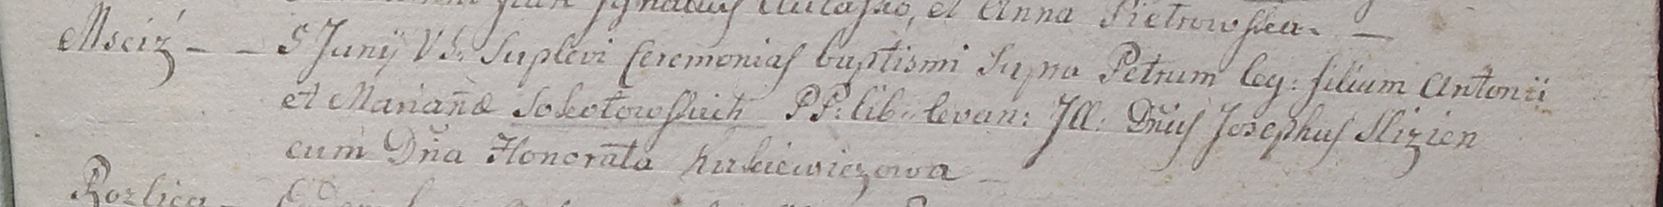 Ignatius et Anna Pietrowska. —
Msciż — — 5 Junij VS. Suplevi Ceremonias baptismi Supra Petrum leg: filium Antonii
et Mariañæ Sokołowskich PP: lib: levan: Jll: Dñus Josephus Slizien
cum Dña Honorata Kukiewiczowa —
Rozlica —